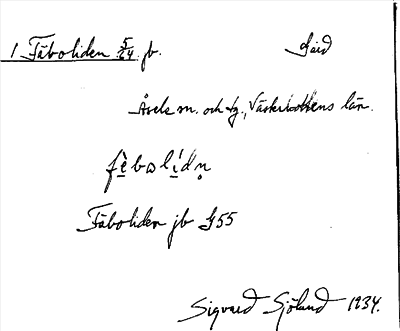 1 Fäboliden 5/24 jb.
Åsele sn. och tg., Västerbottens län.
fè̱bωlí̱dn̥
Fäboliden jb G55
Sigvard Sjölund 1934.